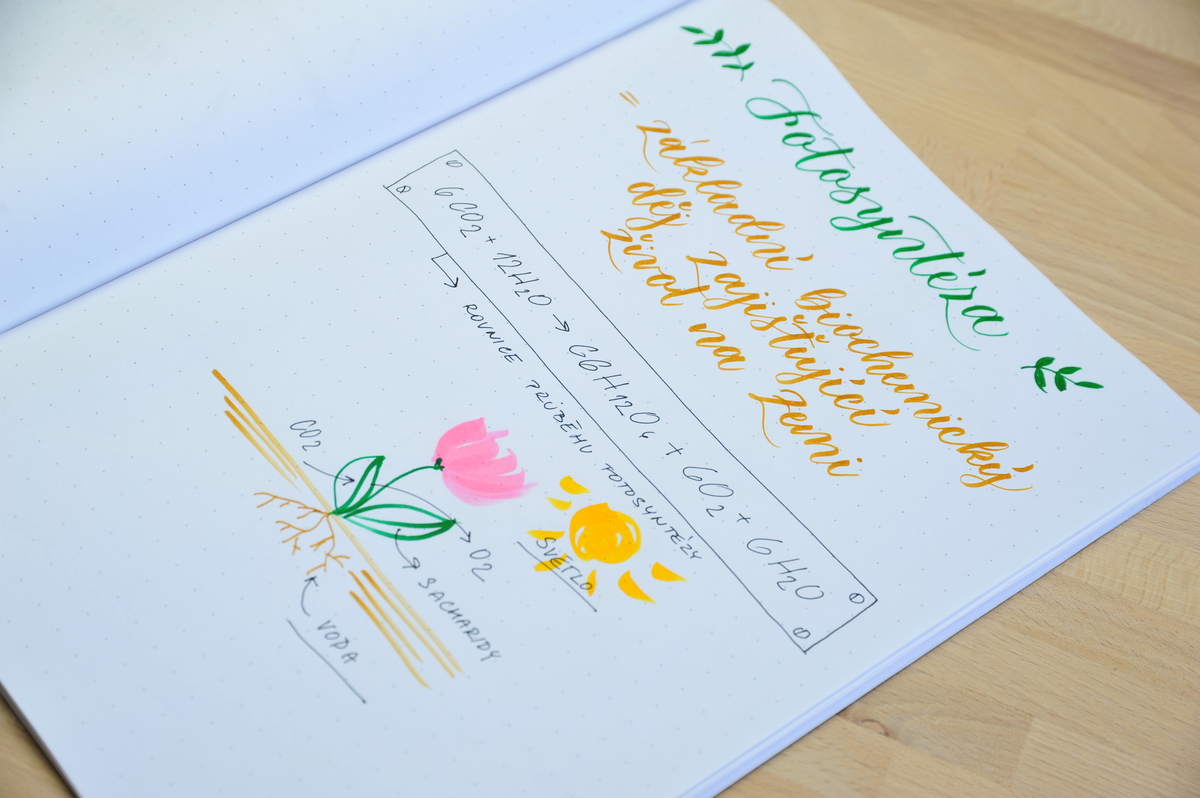 Fotosyntéza
= základní biochemický
děj zajišťující
život na Zemi
6CO₂ + 12H₂O → C6H12O₆ + 6O₂ + 6H₂O
ROVNICE PRŮBĚHU FOTOSYNTÉZY
SVĚTLO
CO₂
O₂
SACHARIDY
VODA